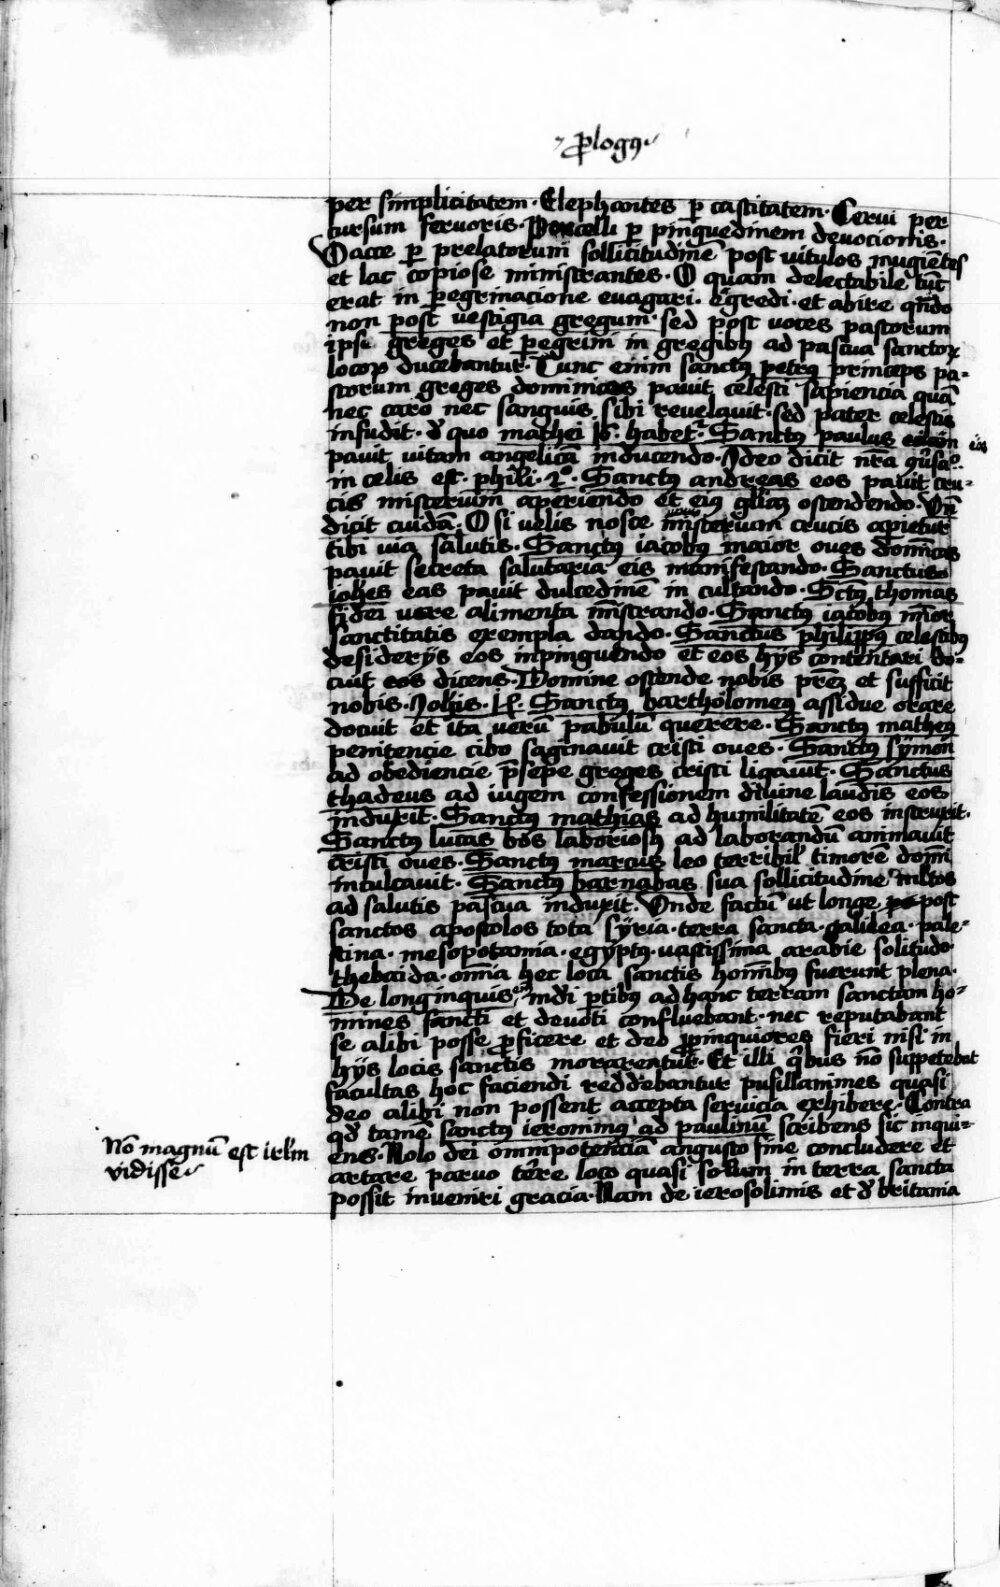 ꝓlogꝰ
per simplicitatem · Elephantes ꝑ castitatem · Cerui per
cursum feruoris · Porcelli ꝑ pinguedinem deuocionis ·
Vacce ꝑ prelatorum sollicitudinē post vitulos mugiētes
et lac copiose ministrantes · O quam delectabile tūc
erat in ꝑegrinacione euagari · egredi · et abire qn̄do
non post vestigia gregum · sed post voces pastorum
ipsi greges et ꝑegrini in gregibꝰ ad pascua sanctoꝝ
locoꝝ ducebantur · Tunc enim sanctꝰ petrꝰ princeps pa-
storum greges dominicos pauit celesti sapiencia quā
nec caro nec sanguis sibi reuelauit · sed pater celestis
infudit · đ quo mathei 16 · habet᷑ · Sanctꝰ paulus
pauit vitam angelicā inducendo · Ideo dicit nr̄a 9ūsac̄o
in celis est · phili · 2° · Sanctꝰ andreas eos pauit cru-
cis misterium aperiendo et eiꝰ gl̄iā ostendendo · Vn̄
dicit cuidā · O si velis nosce misterium crucis apietur
tibi via salutis · Sanctꝰ iacobꝰ maior oues domīcas
pauit secreta salutaria eis manifestando · Sanctus
ioh̄es eas pauit dulcedinē in cultando · Sctꝰ thomas
fidei vere alimenta mīstrando · Sanctꝰ iacobꝰ mīor
sanctitatis exempla dando · Sanctus philippꝰ celestibꝰ
desiderijs eos inpinguendo et eos hijs contentari do-
cuit eos dicens · Domine ostende nobis prēz et sufficit
nobis · Joh̄is · 14 · Sanctꝰ bartholomeꝰ assidue orare
docuit et ita verū pabulū querere · Sanctꝰ matheꝰ
penitencie cibo saginauit cristi oues · Sanctꝰ sÿmon
ad obediencie p̄sepe greges cristi ligauit · Sanctus
thadeus ad iugem confessionem diuine laudis eos
induxit · Sanctꝰ mathias ad humilitatē eos instruxit ·
Sanctꝰ lucas bos laboriosꝰ ad laborandū animauit
cristi oues · Sanctꝰ marcus leo terribil᷑ timorē domī
inculcauit · Sanctꝰ barnabas sua sollicitudine ml̄tos
ad salutis pascua induxit · Vnde factū ut longe post
sanctos apostolos tota sÿria · terra sancta · galilea · pale-
stina · mesopotamia · egÿptꝰ · vastissima arabie solitudo
thebaida · omīa hec loca sanctis homībꝰ fuerunt plena ·
De longinquis em̄ mūdi ꝑtibꝰ ad hanc terram sanctam ho-
mines sancti et deuoti confluebant · nec reputabant
se alibi posse ꝓficere et deo ꝓpinquiores fieri nisi in
hijs locis sanctis morarentur · Et illi qͥbus nō suppetebat
facultas hoc faciendi reddebantur pusillanimes quasi
deo alibi non possent accepta seruicia exhibere · Contra
qđ tamē sanctꝰ ieronimꝰ ad paulinū scribens sic inqui-
ens · Nolo dei omnipotenciā angusto fine concludere et
artare paruo terre loco quasi solum in terra sancta
possit inueniri gracia · Nam de ierosolimis et đ britania
Nō magnū est irl̄m
vidisse